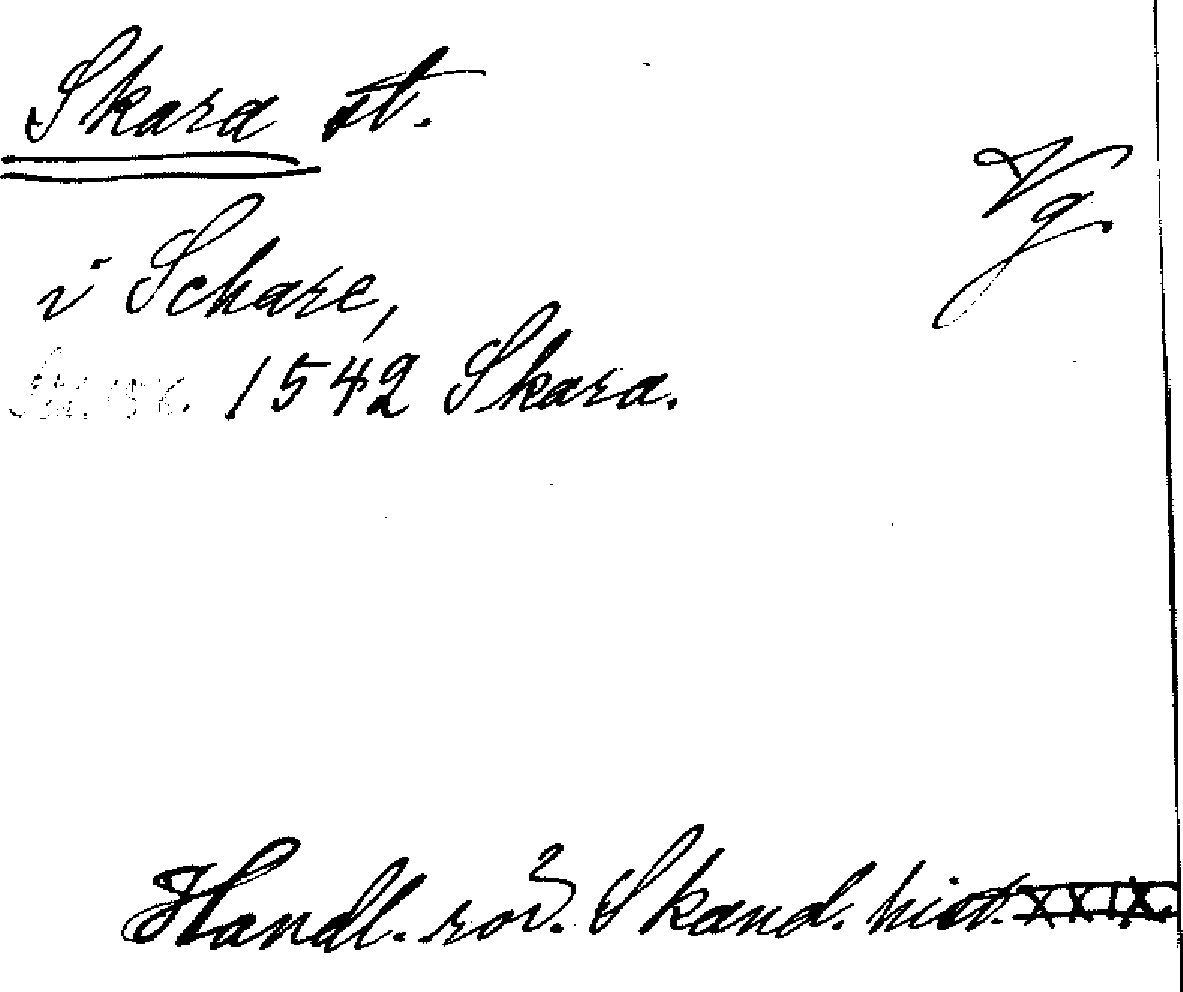 Skara st.
Vg
i Schare,
1542 Skara.
Handl. rör. Skand. hist. XXIX.